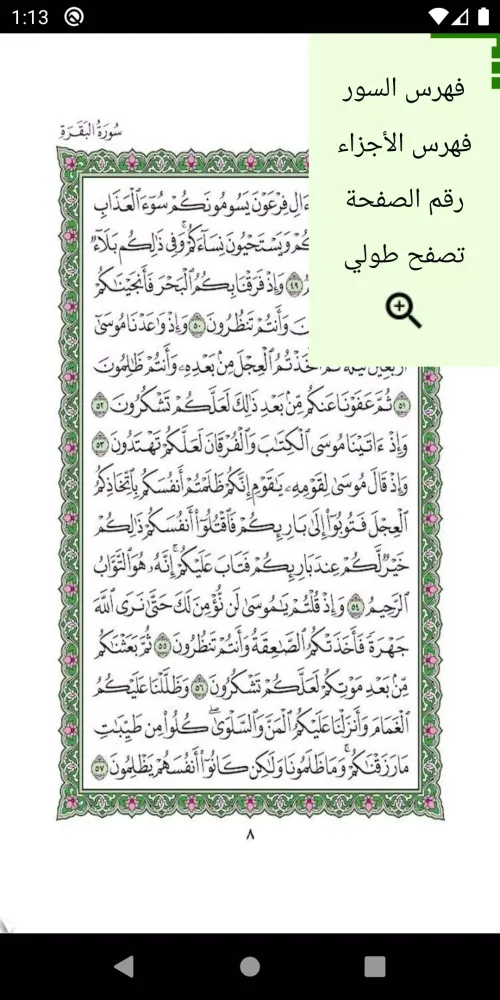 1:13
فهرس السور
فهرس الأجزاء
رقم الصفحة
تصفح طولي
سُورَةُ الْبَقَرَةِ
ءَالِ فِرْعَوْنَ يَسُومُونَكُمْ سُوٓءَ ٱلْعَذَابِ
وَيَسْتَحْيُونَ نِسَآءَكُمْ ۚ وَفِى ذَٰلِكُم بَلَآءٌ
٤٩ وَإِذْ فَرَقْنَا بِكُمُ ٱلْبَحْرَ فَأَنجَيْنَٰكُمْ
وَأَنتُمْ تَنظُرُونَ ٥٠ وَإِذْ وَٰعَدْنَا مُوسَىٰٓ
ٱلْعِجْلَ مِنۢ بَعْدِهِۦ وَأَنتُمْ ظَٰلِمُونَ
٥١ ثُمَّ عَفَوْنَا عَنكُم مِّنۢ بَعْدِ ذَٰلِكَ لَعَلَّكُمْ تَشْكُرُونَ ٥٢
وَإِذْ ءَاتَيْنَا مُوسَى ٱلْكِتَٰبَ وَٱلْفُرْقَانَ لَعَلَّكُمْ تَهْتَدُونَ ٥٣
وَإِذْ قَالَ مُوسَىٰ لِقَوْمِهِۦ يَٰقَوْمِ إِنَّكُمْ ظَلَمْتُمْ أَنفُسَكُم بِٱتِّخَاذِكُمُ
ٱلْعِجْلَ فَتُوبُوٓا۟ إِلَىٰ بَارِئِكُمْ فَٱقْتُلُوٓا۟ أَنفُسَكُمْ ذَٰلِكُمْ
خَيْرٌ لَّكُمْ عِندَ بَارِئِكُمْ فَتَابَ عَلَيْكُمْ ۚ إِنَّهُۥ هُوَ ٱلتَّوَّابُ
ٱلرَّحِيمُ ٥٤ وَإِذْ قُلْتُمْ يَٰمُوسَىٰ لَن نُّؤْمِنَ لَكَ حَتَّىٰ نَرَى ٱللَّهَ
جَهْرَةً فَأَخَذَتْكُمُ ٱلصَّٰعِقَةُ وَأَنتُمْ تَنظُرُونَ ٥٥ ثُمَّ بَعَثْنَٰكُم
مِّنۢ بَعْدِ مَوْتِكُمْ لَعَلَّكُمْ تَشْكُرُونَ ٥٦ وَظَلَّلْنَا عَلَيْكُمُ
ٱلْغَمَامَ وَأَنزَلْنَا عَلَيْكُمُ ٱلْمَنَّ وَٱلسَّلْوَىٰ ۖ كُلُوا۟ مِن طَيِّبَٰتِ
مَا رَزَقْنَٰكُمْ ۖ وَمَا ظَلَمُونَا وَلَٰكِن كَانُوٓا۟ أَنفُسَهُمْ يَظْلِمُونَ ٥٧
٨